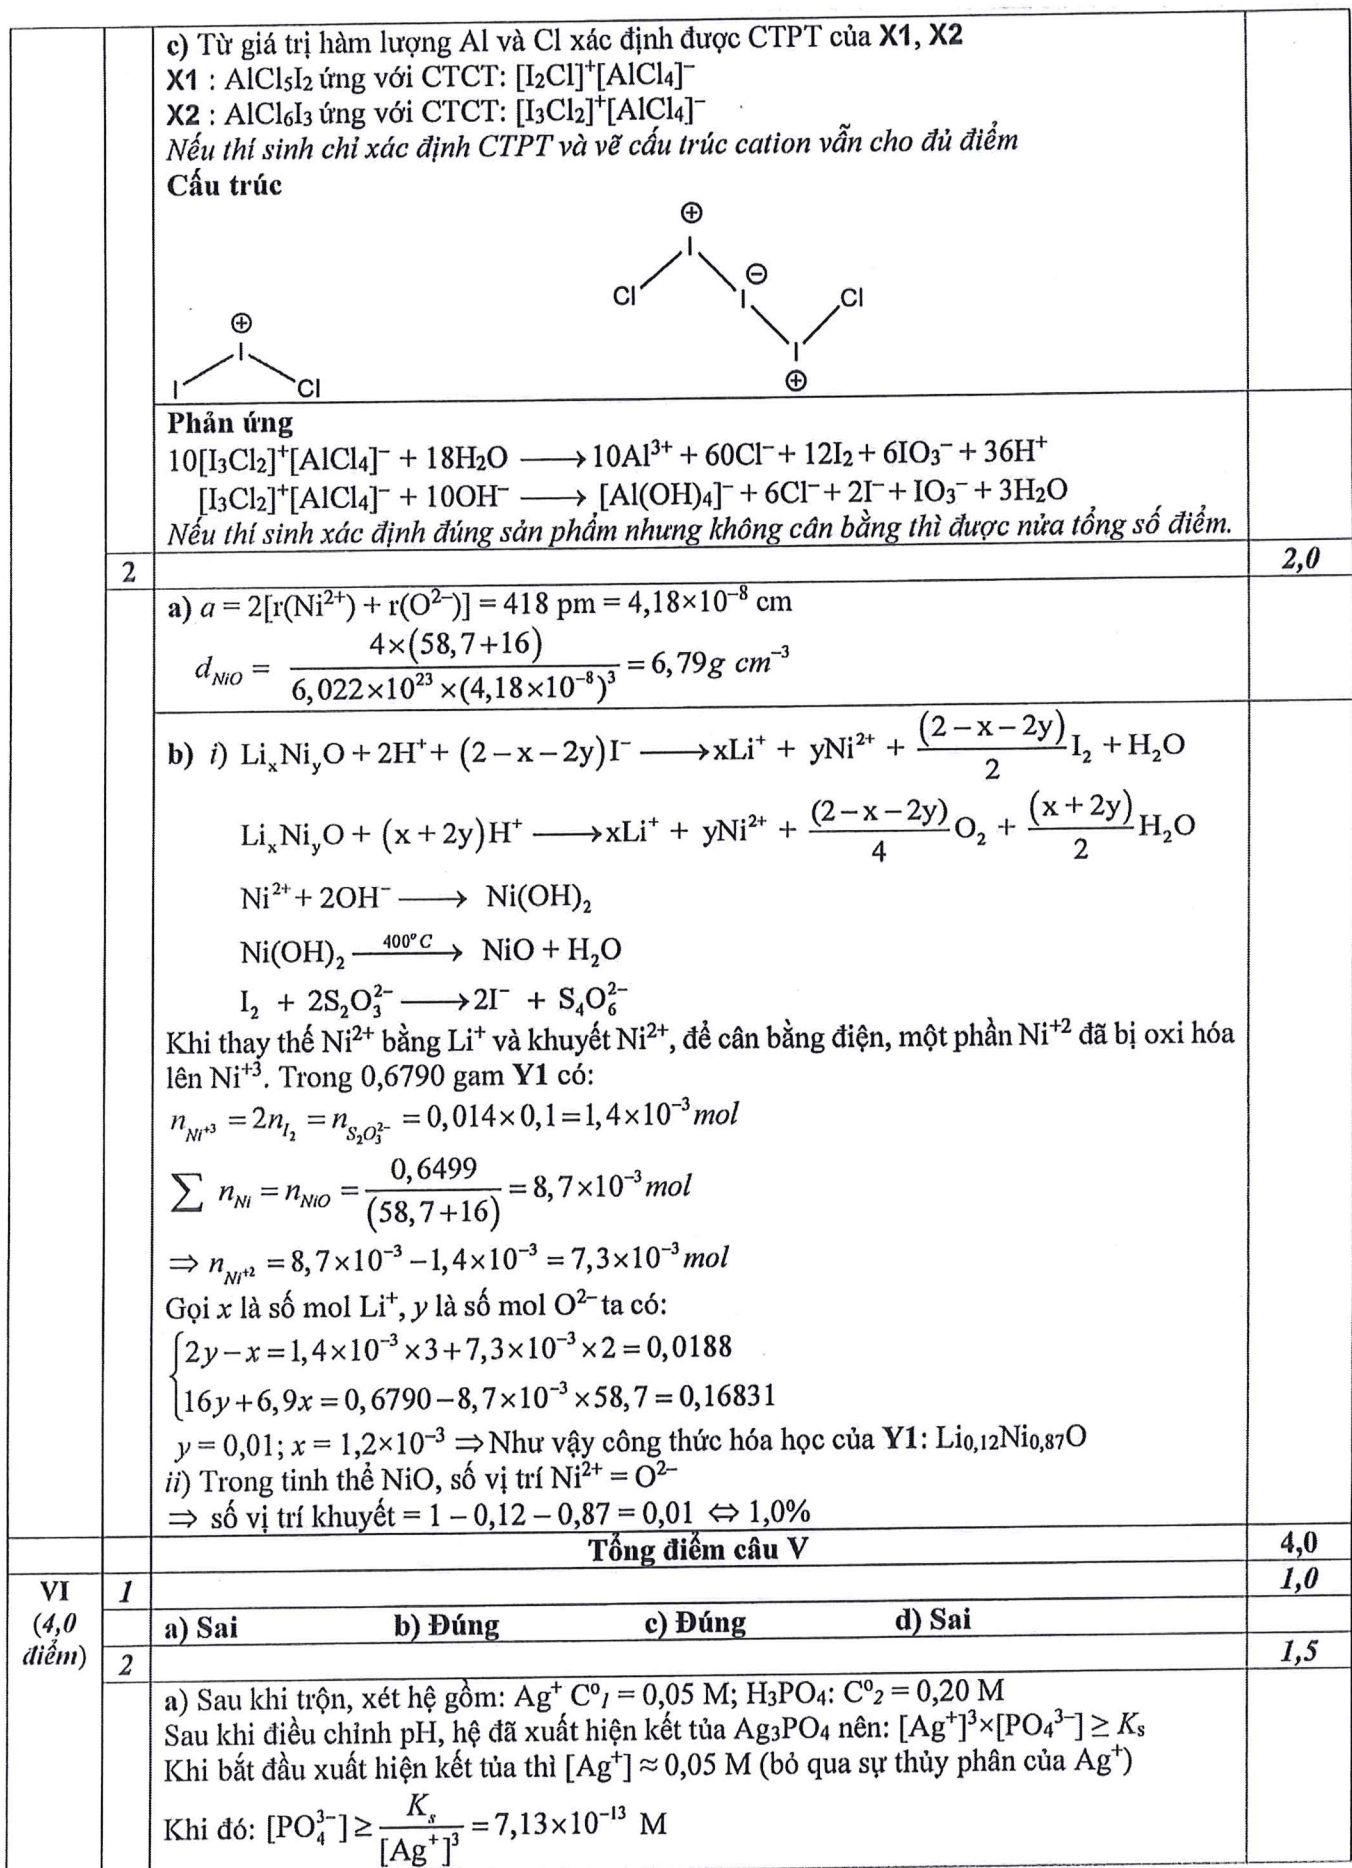 c) Từ giá trị hàm lượng Al và Cl xác định được CTPT của X1, X2
X1 : AlCl₅I₂ ứng với CTCT: [I₂Cl]⁺[AlCl₄]⁻
X2 : AlCl₆I₃ ứng với CTCT: [I₃Cl₂]⁺[AlCl₄]⁻
Nếu thí sinh chỉ xác định CTPT và vẽ cấu trúc cation vẫn cho đủ điểm
Cấu trúc
⊕
I
I Cl
⊕
I
Cl
⊖
I
Cl
I
⊕
Phản ứng
10[I₃Cl₂]⁺[AlCl₄]⁻ + 18H₂O ⟶ 10Al³⁺ + 60Cl⁻ + 12I₂ + 6IO₃⁻ + 36H⁺
[I₃Cl₂]⁺[AlCl₄]⁻ + 10OH⁻ ⟶ [Al(OH)₄]⁻ + 6Cl⁻ + 2I⁻ + IO₃⁻ + 3H₂O
Nếu thí sinh xác định đúng sản phẩm nhưng không cân bằng thì được nửa tổng số điểm.
2 2,0
a) a = 2[r(Ni²⁺) + r(O²⁻)] = 418 pm = 4,18×10⁻⁸ cm
d_NiO = 4×(58,7+16) / (6,022×10²³×(4,18×10⁻⁸)³) = 6,79g cm⁻³
b) i) LiₓNi_yO + 2H⁺ + (2−x−2y)I⁻ ⟶ xLi⁺ + yNi²⁺ + (2−x−2y)/2 I₂ + H₂O
LiₓNi_yO + (x+2y)H⁺ ⟶ xLi⁺ + yNi²⁺ + (2−x−2y)/4 O₂ + (x+2y)/2 H₂O
Ni²⁺ + 2OH⁻ ⟶ Ni(OH)₂
Ni(OH)₂ —400°C→ NiO + H₂O
I₂ + 2S₂O₃²⁻ ⟶ 2I⁻ + S₄O₆²⁻
Khi thay thế Ni²⁺ bằng Li⁺ và khuyết Ni²⁺, để cân bằng điện, một phần Ni⁺² đã bị oxi hóa
lên Ni⁺³. Trong 0,6790 gam Y1 có:
n_Ni⁺³ = 2n_I₂ = n_S₂O₃²⁻ = 0,014×0,1 = 1,4×10⁻³ mol
∑ n_Ni = n_NiO = 0,6499/(58,7+16) = 8,7×10⁻³ mol
⇒ n_Ni⁺² = 8,7×10⁻³ − 1,4×10⁻³ = 7,3×10⁻³ mol
Gọi x là số mol Li⁺, y là số mol O²⁻ ta có:
{2y − x = 1,4×10⁻³×3 + 7,3×10⁻³×2 = 0,0188
16y + 6,9x = 0,6790 − 8,7×10⁻³×58,7 = 0,16831
y = 0,01; x = 1,2×10⁻³ ⇒ Như vậy công thức hóa học của Y1: Li₀,₁₂Ni₀,₈₇O
ii) Trong tinh thể NiO, số vị trí Ni²⁺ = O²⁻
⇒ số vị trí khuyết = 1 − 0,12 − 0,87 = 0,01 ⇔ 1,0%
Tổng điểm câu V 4,0
VI 1 1,0
(4,0
điểm)
a) Sai b) Đúng c) Đúng d) Sai
2 1,5
a) Sau khi trộn, xét hệ gồm: Ag⁺ C⁰₁ = 0,05 M; H₃PO₄: C⁰₂ = 0,20 M
Sau khi điều chỉnh pH, hệ đã xuất hiện kết tủa Ag₃PO₄ nên: [Ag⁺]³×[PO₄³⁻] ≥ Kₛ
Khi bắt đầu xuất hiện kết tủa thì [Ag⁺] ≈ 0,05 M (bỏ qua sự thủy phân của Ag⁺)
Khi đó: [PO₄³⁻] ≥ Kₛ/[Ag⁺]³ = 7,13×10⁻¹³ M